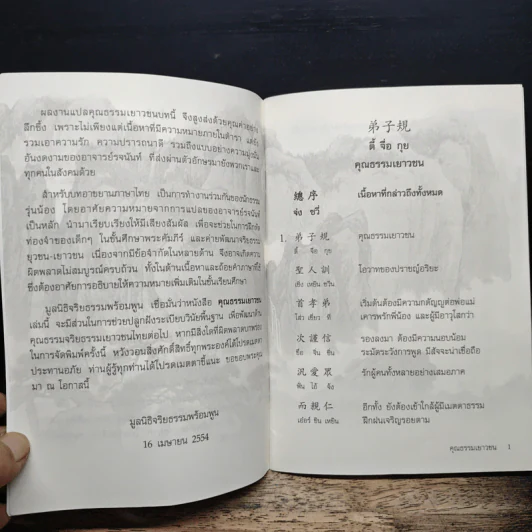 ผลงานแปลคุณธรรมเยาวชนบทนี้ จึงสูงส่งด้วยคุณค่าอย่าง
ลึกซึ้ง เพราะไม่เพียงแต่เนื้อหาที่มีความหมายภายในตำรา แต่ยัง
รวมเอาความรัก ความปรารถนาดี รวมถึงแบบอย่างความมุ่งมั่น
อันงดงามของอาจารย์รจนันท์ ที่ส่งผ่านตัวอักษรมายังพวกเราและ
ทุกคนในสังคมด้วย
สำหรับบทอาขยานภาษาไทย เป็นการทำงานร่วมกันของนักธรรม
รุ่นน้อง โดยอาศัยความหมายจากการแปลของอาจารย์รจนันท์
เป็นหลัก นำมาเรียบเรียงให้มีเสียงสัมผัส เพื่อจะช่วยในการฝึกหัด
ท่องจำของเด็กๆ ในชั้นศึกษาพระคัมภีร์ และค่ายพัฒนาจริยธรรม
ยุวชน-เยาวชน เนื่องจากมีข้อจำกัดในหลายด้าน จึงอาจเกิดความ
ผิดพลาดไม่สมบูรณ์ครบถ้วน ทั้งในด้านเนื้อหาและถ้อยคำภาษาที่ใช้
ซึ่งต้องอาศัยการอธิบายให้ความหมายเพิ่มเติมในชั้นเรียนศึกษา
มูลนิธิจริยธรรมพร้อมพูน เชื่อมั่นว่าหนังสือ คุณธรรมเยาวชน
เล่มนี้ จะมีส่วนในการช่วยปลูกฝังระเบียบวินัยพื้นฐาน เพื่อพัฒนาด้าน
คุณธรรมจริยธรรมแก่เยาวชนไทยต่อไป หากมีสิ่งใดที่ผิดพลาดบกพร่อง
ในการจัดพิมพ์ครั้งนี้ หวังวอนสิ่งศักดิ์สิทธิ์ทุกพระองค์ได้โปรดเมตตา
ประทานอภัย ท่านผู้รู้ทุกท่านได้โปรดเมตตาชี้แนะ ขอขอบพระคุณ
มา ณ โอกาสนี้
มูลนิธิจริยธรรมพร้อมพูน
16 เมษายน 2554
弟子規
ตี้ จื่อ กุย
คุณธรรมเยาวชน
總 序 เนื้อหาที่กล่าวถึงทั้งหมด
จ่ง ซวี่
1. 弟 子 規 คุณธรรมเยาวชน
ตี้ จื่อ กุย
聖 人 訓 โอวาทของปราชญ์อริยะ
เซิ่ง เหยิน ซวิ่น
首 孝 弟 เริ่มต้นต้องมีความกตัญญูต่อพ่อแม่
โส่ว เซี่ยว ที่ เคารพรักพี่น้อง และผู้มีอาวุโสกว่า
次 謹 信 รองลงมา ต้องมีความนอบน้อม
ชื่อ จิ่น ซิ่น ระมัดระวังการพูด มีสัจจะน่าเชื่อถือ
汎 愛 眾 รักผู้คนทั้งหลายอย่างเสมอภาค
ฟ่าน ไอ้ จ้ง
而 親 仁 อีกทั้ง ยังต้องเข้าใกล้ผู้มีเมตตาธรรม
เอ๋อร์ ชิน เหยิน ฝึกฝนเจริญรอยตาม
คุณธรรมเยาวชน 1